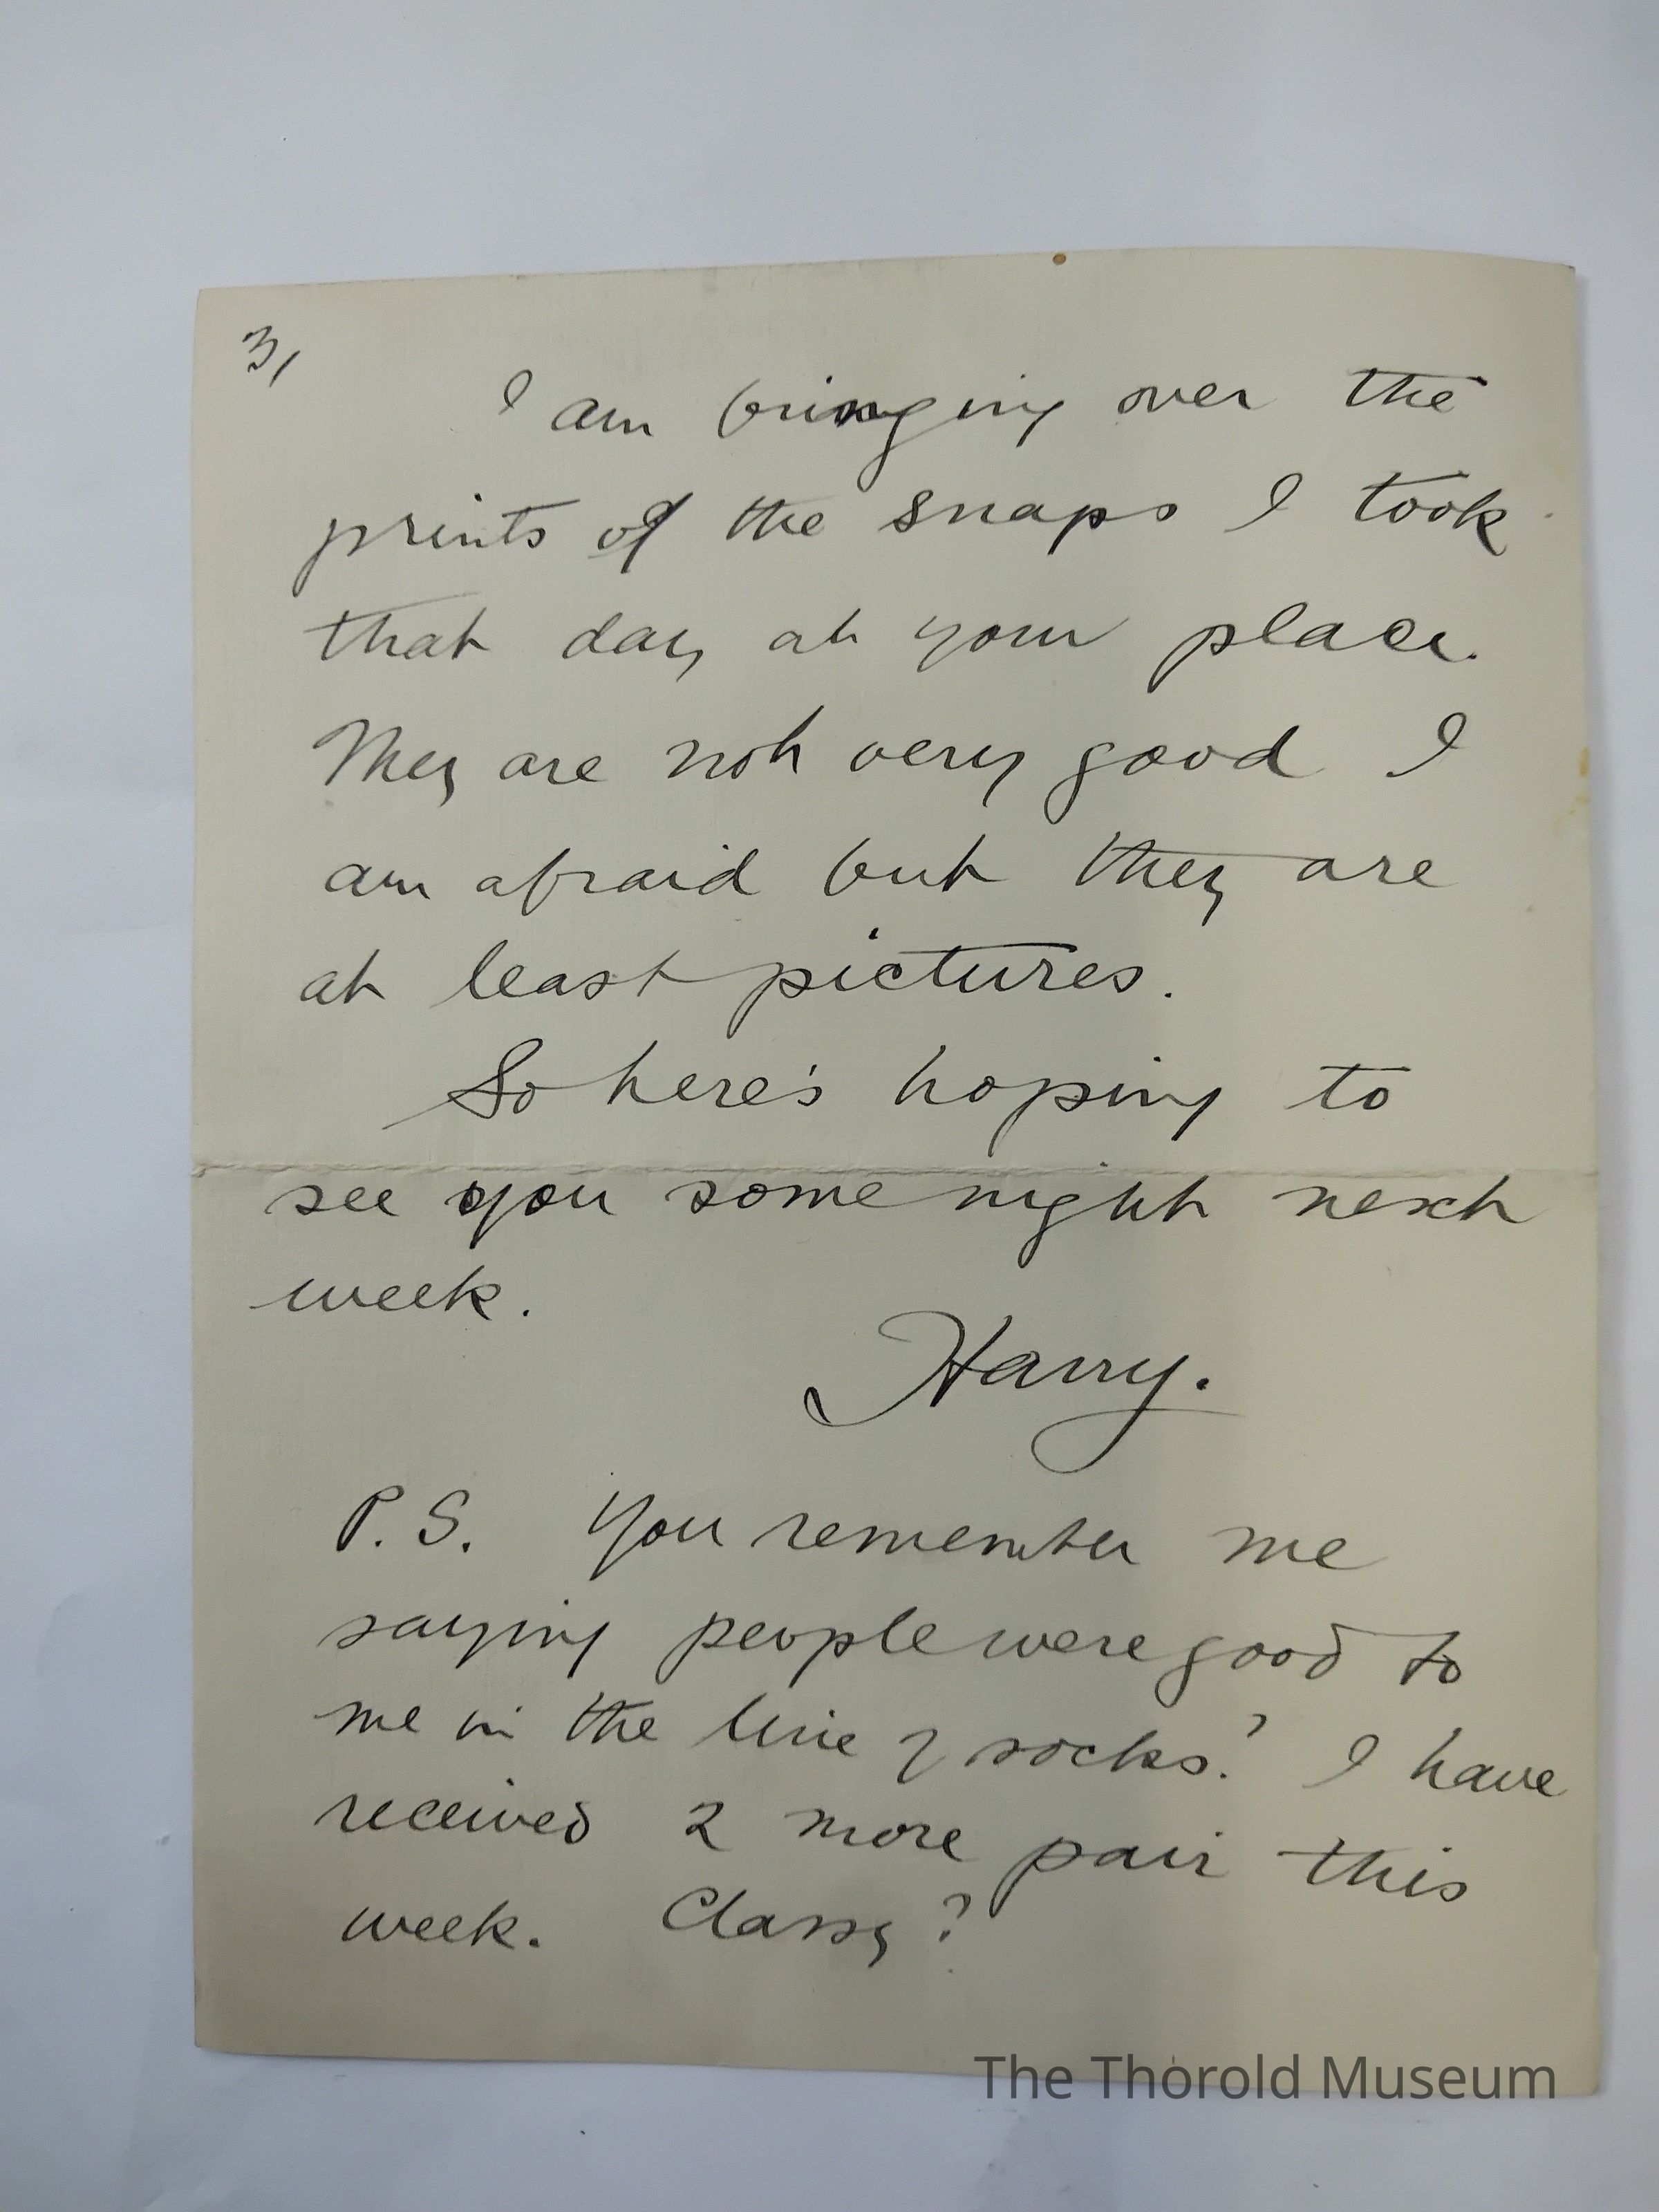 3/
I am bringing over the
prints of the snaps I took
that day at your place.
They are not very good I
am afraid but they are
at least pictures.
So here's hoping to
see you some night next
week.
Harry.
P.S. You remember me
saying people were good to
me in the line of socks? I have
received 2 more pair this
week. Classy?
The Thorold Museum